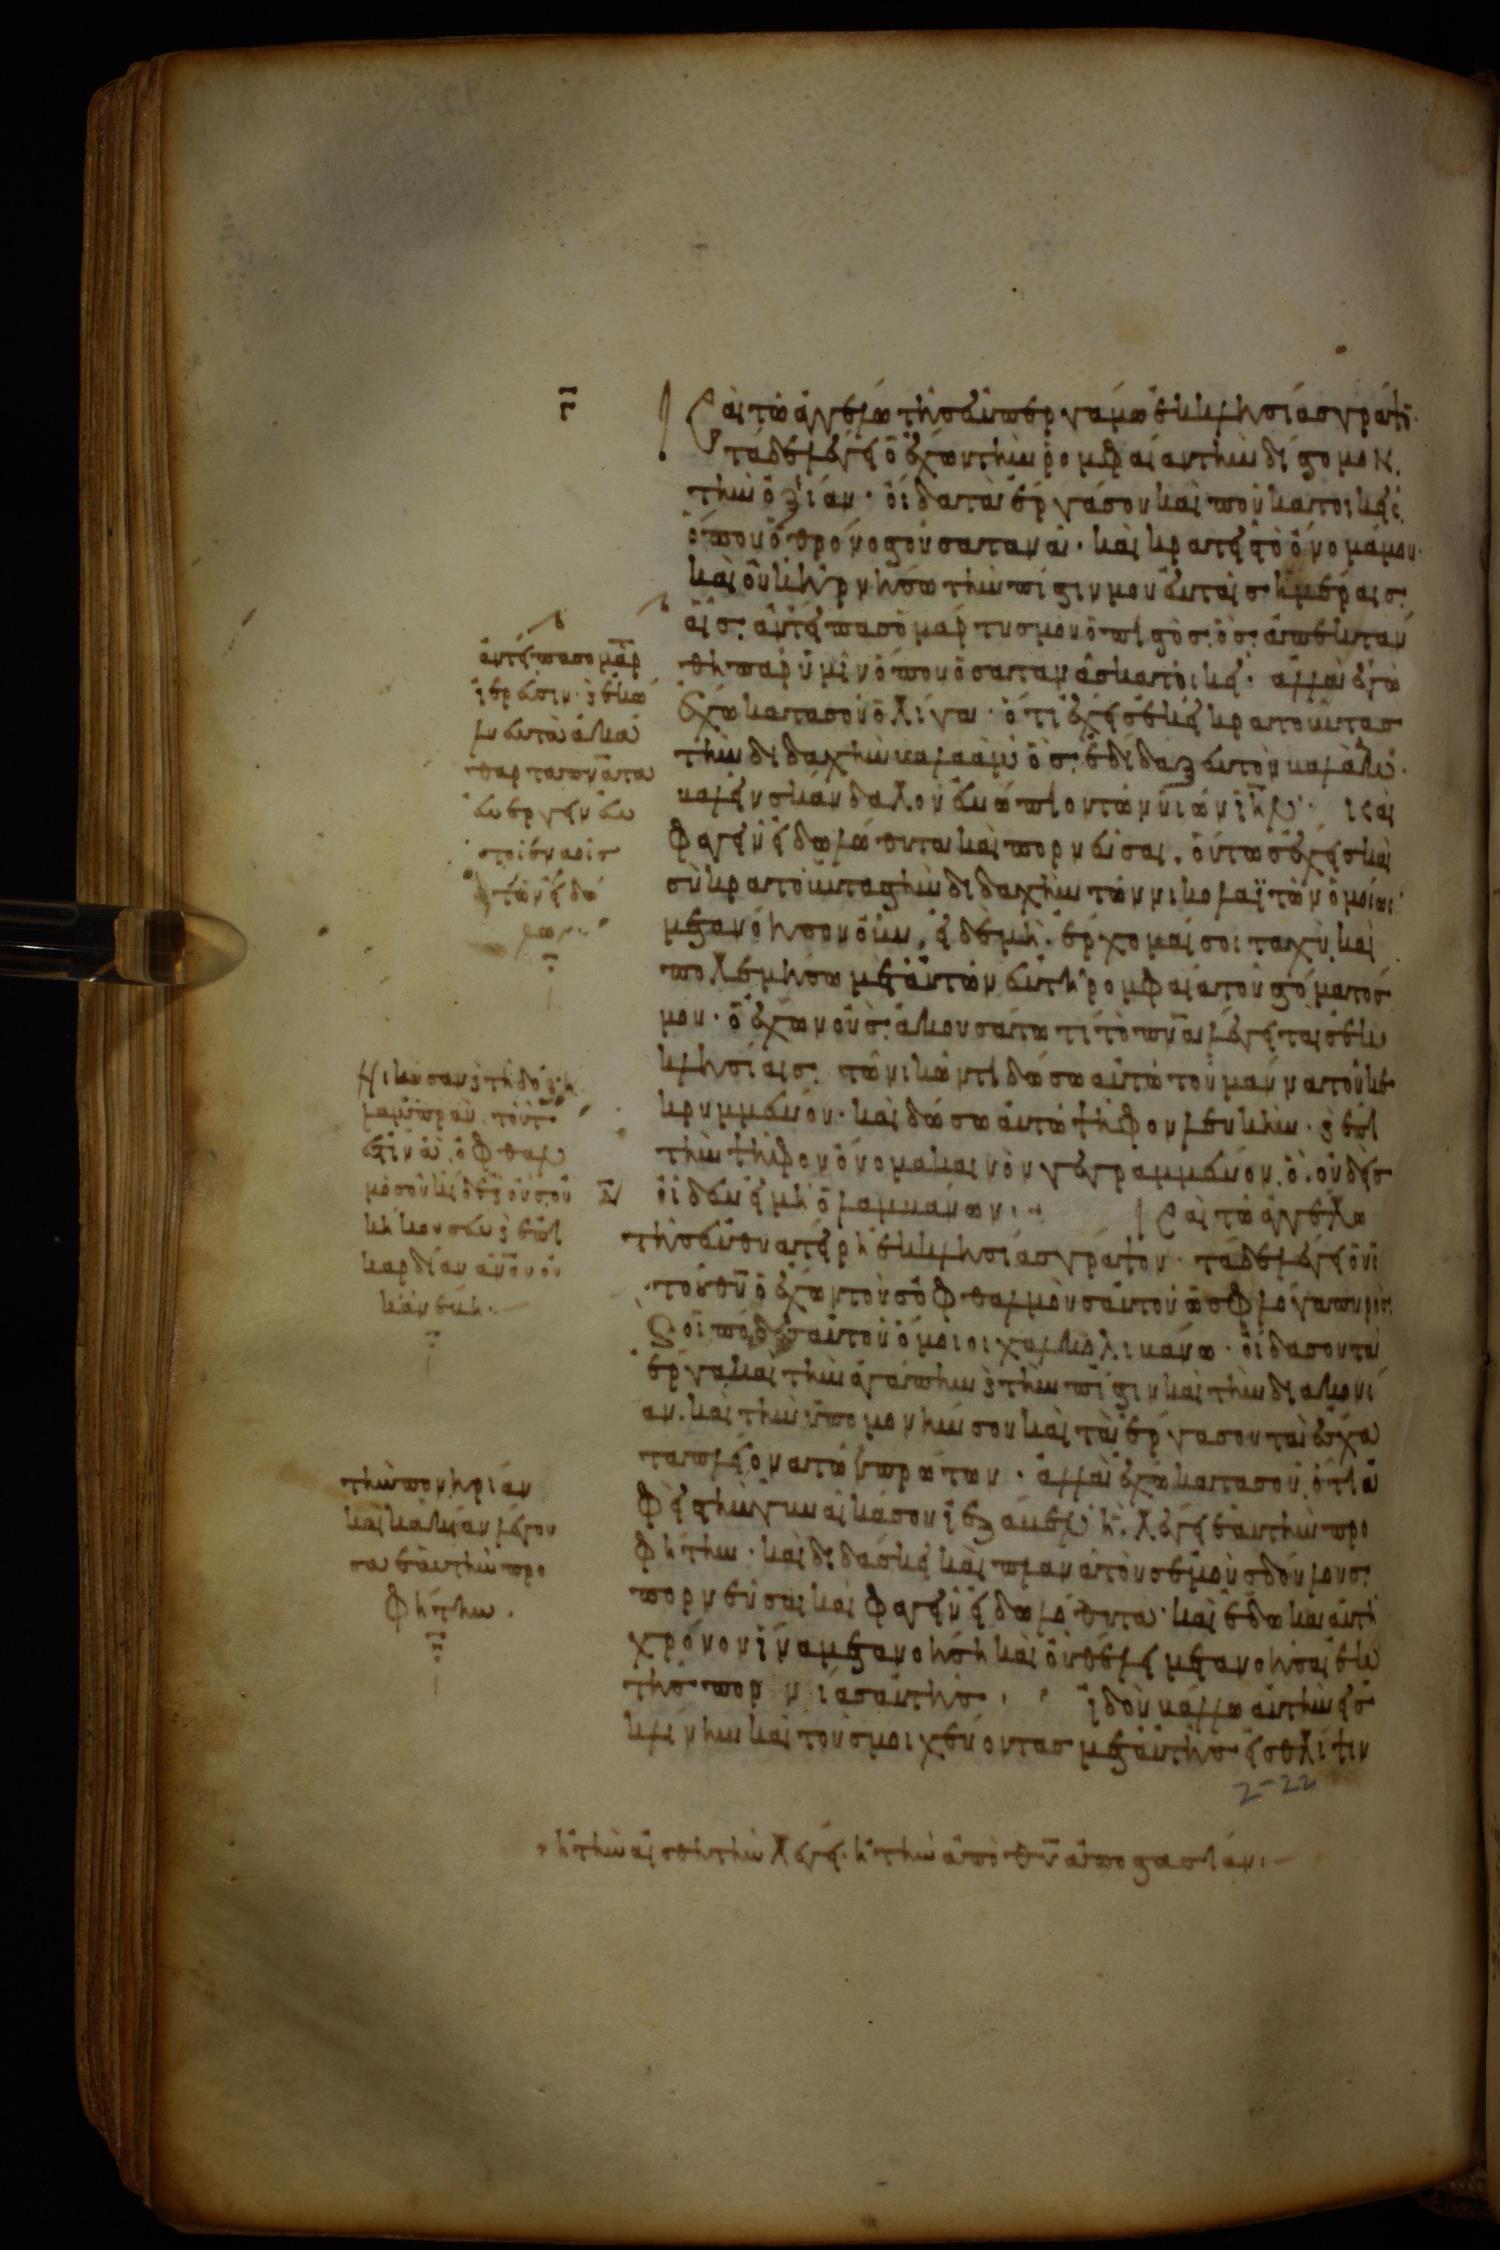 Γ
Καὶ τῶ ἀγγέλω τῆς ἐν περγάμω ἐκκλησίας γράψον·
τάδε λέγει ὁ ἔχων τὴν ρομφαίαν τὴν δίστομον
τὴν ὀξεῖαν· οἶδα τὰ ἔργα σου καὶ ποῦ κατοικεῖς
ὅπου ὁ θρόνος τοῦ σατανᾶ· καὶ κρατεῖς τὸ ὄνομά μου·
καὶ οὐκ ἠρνήσω τὴν πίστιν μου ἐν ταῖς ἡμέραις
αἷς ἀντεῖπας ὁ μάρτυς μου ὁ πιστός· ὃς ἀπεκτάν
θη παρ ὑμῖν ὅπου ὁ σατανᾶς κατοικεῖ· ἀλλὰ ἐγὼ
ἔχω κατὰ σοῦ ὀλίγα· ὅτι ἔχεις ἐκεῖ κρατοῦντας
τὴν διδαχὴν βαλαὰμ ὃς ἐδίδαξεν τὸν βαλὰκ
βαλεῖν σκάνδαλον ἐνώπιον τῶν υἱῶν ιηλ· καὶ
φαγεῖν εἰδωλόθυτα καὶ πορνεῦσαι. οὕτως ἔχεις καὶ
σὺ κρατοῦντας τὴν διδαχὴν τῶν νικολαϊτῶν ὁμοίως·
μετανόησον οὖν, εἰ δὲ μὴ. ἔρχομαί σοι ταχὺ καὶ
πολεμήσω μετ αὐτῶν ἐν τῆ ρομφαία τοῦ στόματός
μου· ὁ ἔχων οὖς ἀκουσάτω τί τὸ πνα λέγει ταῖς ἐκ
κλησίαις· τῶ νικῶντι δώσω αὐτῶ τοῦ μάννα τοῦ κε
κρυμμένου· καὶ δώσω αὐτῶ ψῆφον λευκὴν· καὶ ἐπὶ
τὴν ψῆφον ὄνομα καινὸν γεγραμμένον. ὃ οὐδεὶς
οἶδεν εἰ μὴ ὁ λαμβάνων. Καὶ τῶ ἀγγέλω
τῆς ἐν θυατείρη ἐκκλησίας γράψον· τάδε λέγει ὁ υἱὸς
τοῦ θυ ὁ ἔχων τοὺς ὀφθαλμοὺς αὐτοῦ ὡς φλόγα πυρὸς
καὶ οἱ πόδες αὐτοῦ ὅμοιοι χαλκολιβάνω· οἶδά σου τὰ
ἔργα καὶ τὴν ἀγάπην καὶ τὴν πίστιν καὶ τὴν διακονί
αν. καὶ τὴν ὑπομονήν σου καὶ τὰ ἔργα σου τὰ ἔσχα
τα πλείονα τῶν πρώτων· ἀλλὰ ἔχω κατὰ σοῦ ὅτι ἀ
φεῖς τὴν γυναῖκά σου ἰεζάβελ ἣ λέγει ἑαυτὴν προ
φῆτιν· καὶ διδάσκει καὶ πλανᾶ τοὺς ἐμοὺς δούλους
πορνεῦσαι καὶ φαγεῖν εἰδωλόθυτα· καὶ ἔδωκα αὐτῆ
χρόνον ἵνα μετανοήση καὶ οὐ θέλει μετανοῆσαι ἐκ
τῆς πορνείας αὐτῆς· ἰδοὺ βάλλω αὐτὴν εἰς
κλίνην καὶ τοὺς μοιχεύοντας μετ αὐτῆς εἰς θλίψιν
2-22
ἀντεῖπας ὁ μάρ
τὰ ἀκά
θαρτα πνατα
ἐνεργεῖν ἐν
τοῖς ναοῖς
τῶν εἰδώ
λων
Δ
μὸς οὐκ εἶδε καὶ οὖς οὐ
κ ἤκουσεν καὶ ἐπὶ
καρδίαν ανου οὐ
κ ἀνέβη
τὴν πονηρίαν
καὶ κακίαν λέγου
σα ἑαυτὴν προ
φῆτιν.
ἢ τὴν αἰσθητὴν λέγει· ἢ τὴν ἀπὸ θυ ἀποστασίαν